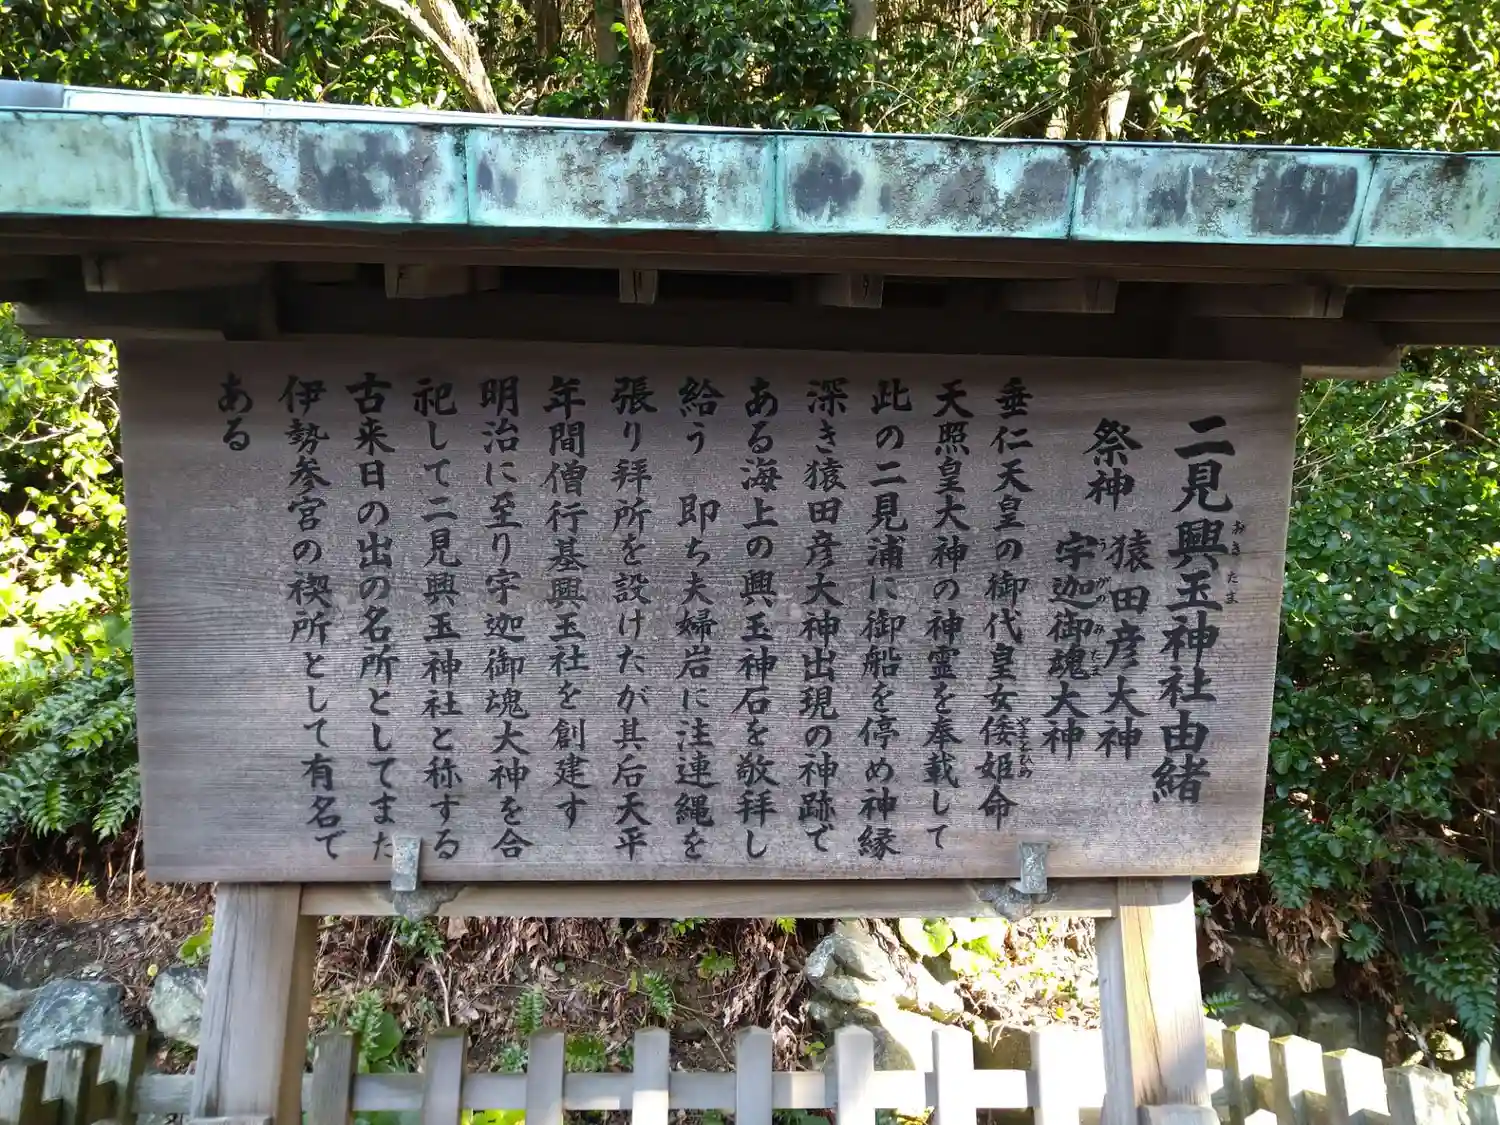 二見興玉神社由緒
おきたま
祭神 猿田彦大神
宇迦御魂大神
うがのみたま
垂仁天皇の御代皇女倭姫命
やまとひめ
天照皇大神の神霊を奉載して
此の二見浦に御船を停め神縁
深き猿田彦大神出現の神跡で
ある海上の興玉神石を敬拝し
給う 即ち夫婦岩に注連縄を
張り拝所を設けたが其后天平
年間僧行基興玉社を創建す
明治に至り宇迦御魂大神を合
祀して二見興玉神社と称する
古来日の出の名所としてまた
伊勢参宮の禊所として有名で
ある